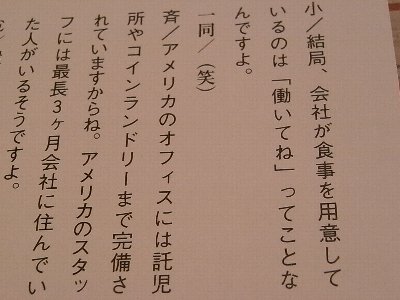 小／結局、会社が食事を用意して
いるのは「働いてね」ってことな
んですよ。
一同／（笑）
斉／アメリカのオフィスには託児
所やコインランドリーまで完備さ
れていますからね。アメリカのスタッ
フには最長３ヶ月会社に住んでい
た人がいるそうですよ。